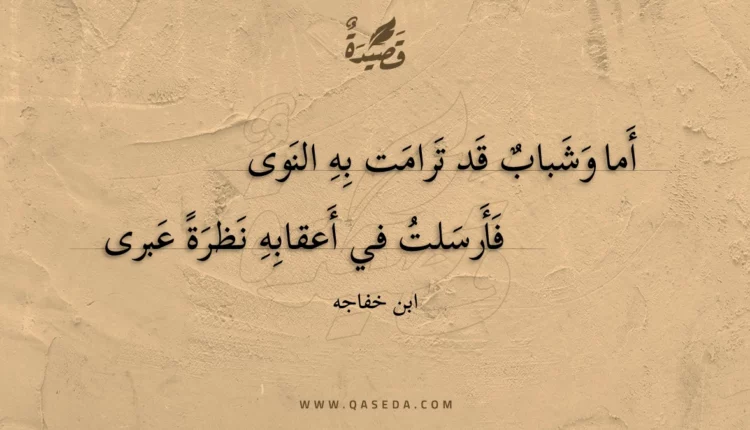 قَصِيدَةٌ
أَما وَشَبابٌ قَد تَرامَت بِهِ النَوى
فَأَرسَلتُ في أَعقابِهِ نَظرَةً عَبرى
ابن خفاجه
WWW.QASEDA.COM